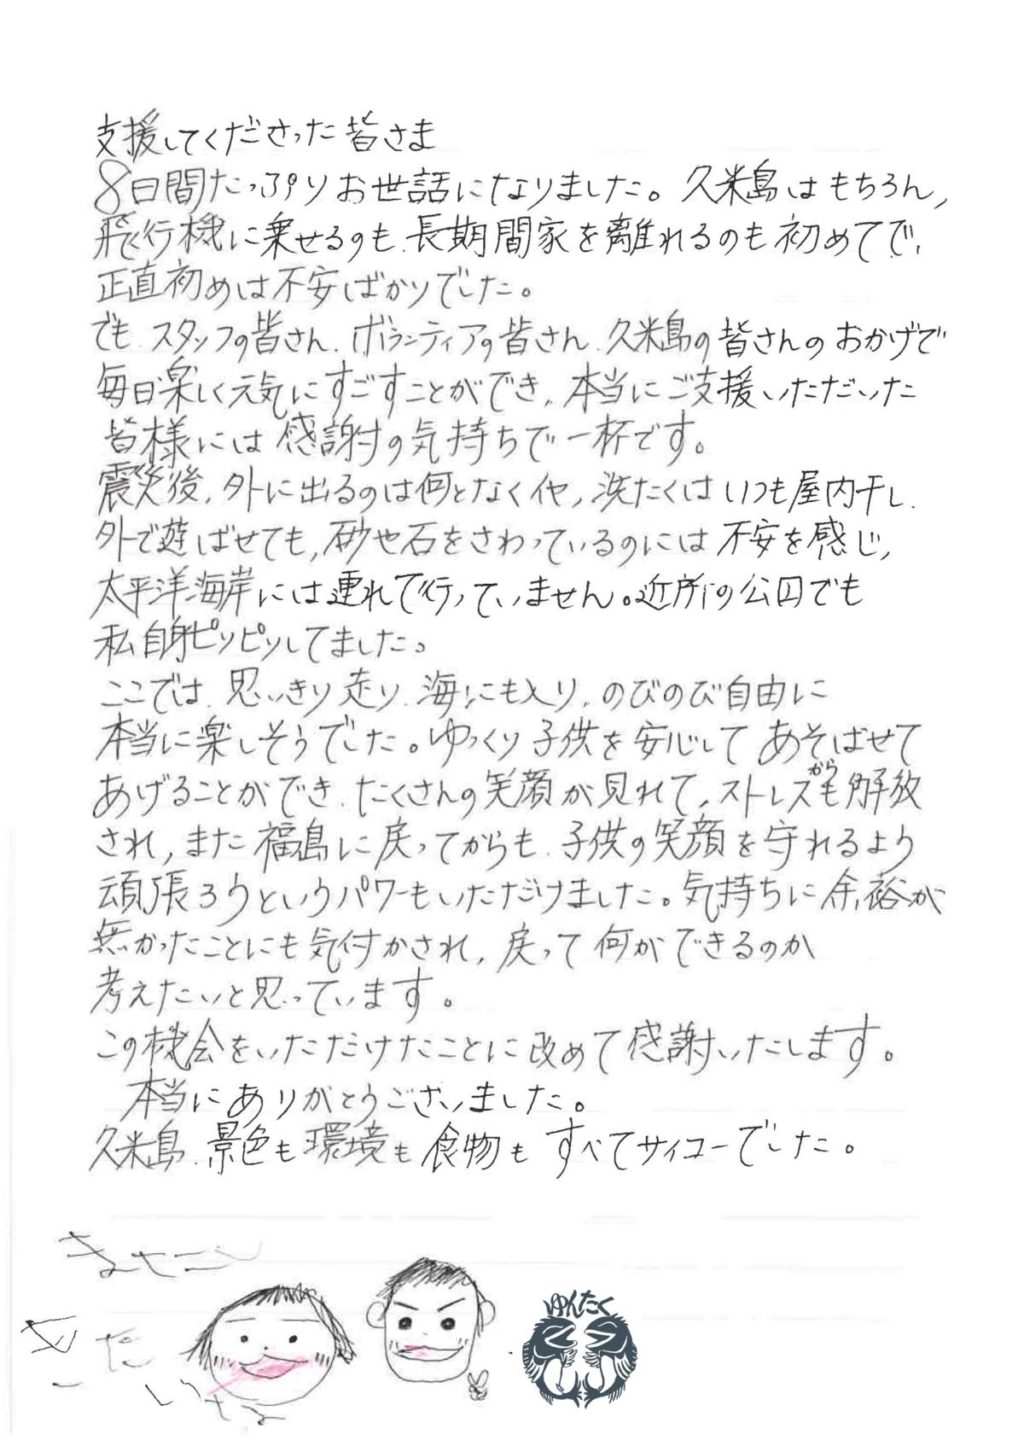 支援してくださった皆さま
8日間たっぷりお世話になりました。久米島はもちろん,
飛行機に乗せるのも、長期間家を離れるのも初めてで、
正直初めは不安ばかりでした。
でも、スタッフの皆さん、ボランティアの皆さん、久米島の皆さんのおかげで
毎日楽しく元気にすごすことができ、本当にご支援いただいた
皆様には感謝の気持ちで一杯です。
震災後、外に出るのは何となくイヤ,洗たくはいつも屋内干し、
外で遊ばせても,砂や石をさわっているのには不安を感じ,
太平洋海岸には連れて行っていません。近所の公園でも
私自身ピリピリしてました。
ここでは、思いきり走り、海にも入り、のびのび自由に
本当に楽しそうでした。ゆっくり子供を安心してあそばせて
あげることができ、たくさんの笑顔が見れて,ストレスからも解放
され,また福島に戻ってからも、子供の笑顔を守れるよう
頑張ろうというパワーもいただけました。気持ちに余裕が
無かったことにも気付かされ,戻って何ができるのか
考えたいと思っています。
この機会をいただけたことに改めて感謝いたします。
本当にありがとうございました。
久米島、景色も環境も食物もすべてサイコーでした。
ゆんたく